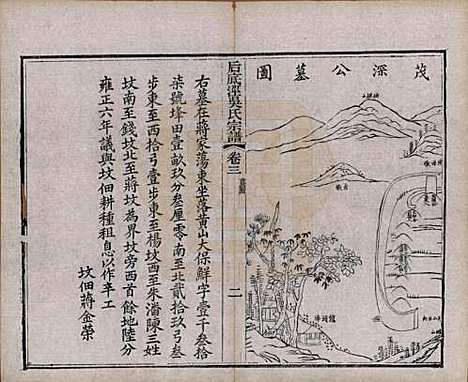 茂深公墓圖
后底涇吳氏宗譜
卷三
墓圖
二
右墓在蔣家蕩東坐落黃山大保鮮字壹千叁拾
柒號塟田壹畝玖分叁厘零南至北貳拾玖弓叁
步東至西拾弓壹步東至楊坟西至朱潘陳三姓
坟南至錢坟北至蔣坟為界坟旁西首餘地陸分
雍正六年議與坟佃耕種租息以作辛工
坟佃蔣金榮